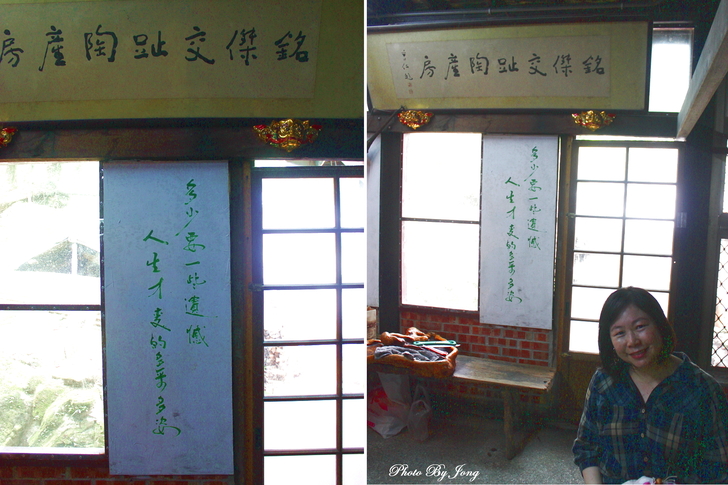 銘傑交趾陶產房
多少要一些遺憾
人生才變的多采多姿
銘傑交趾陶產房
多少要一些遺憾
人生才變的多采多姿
Photo By Jong